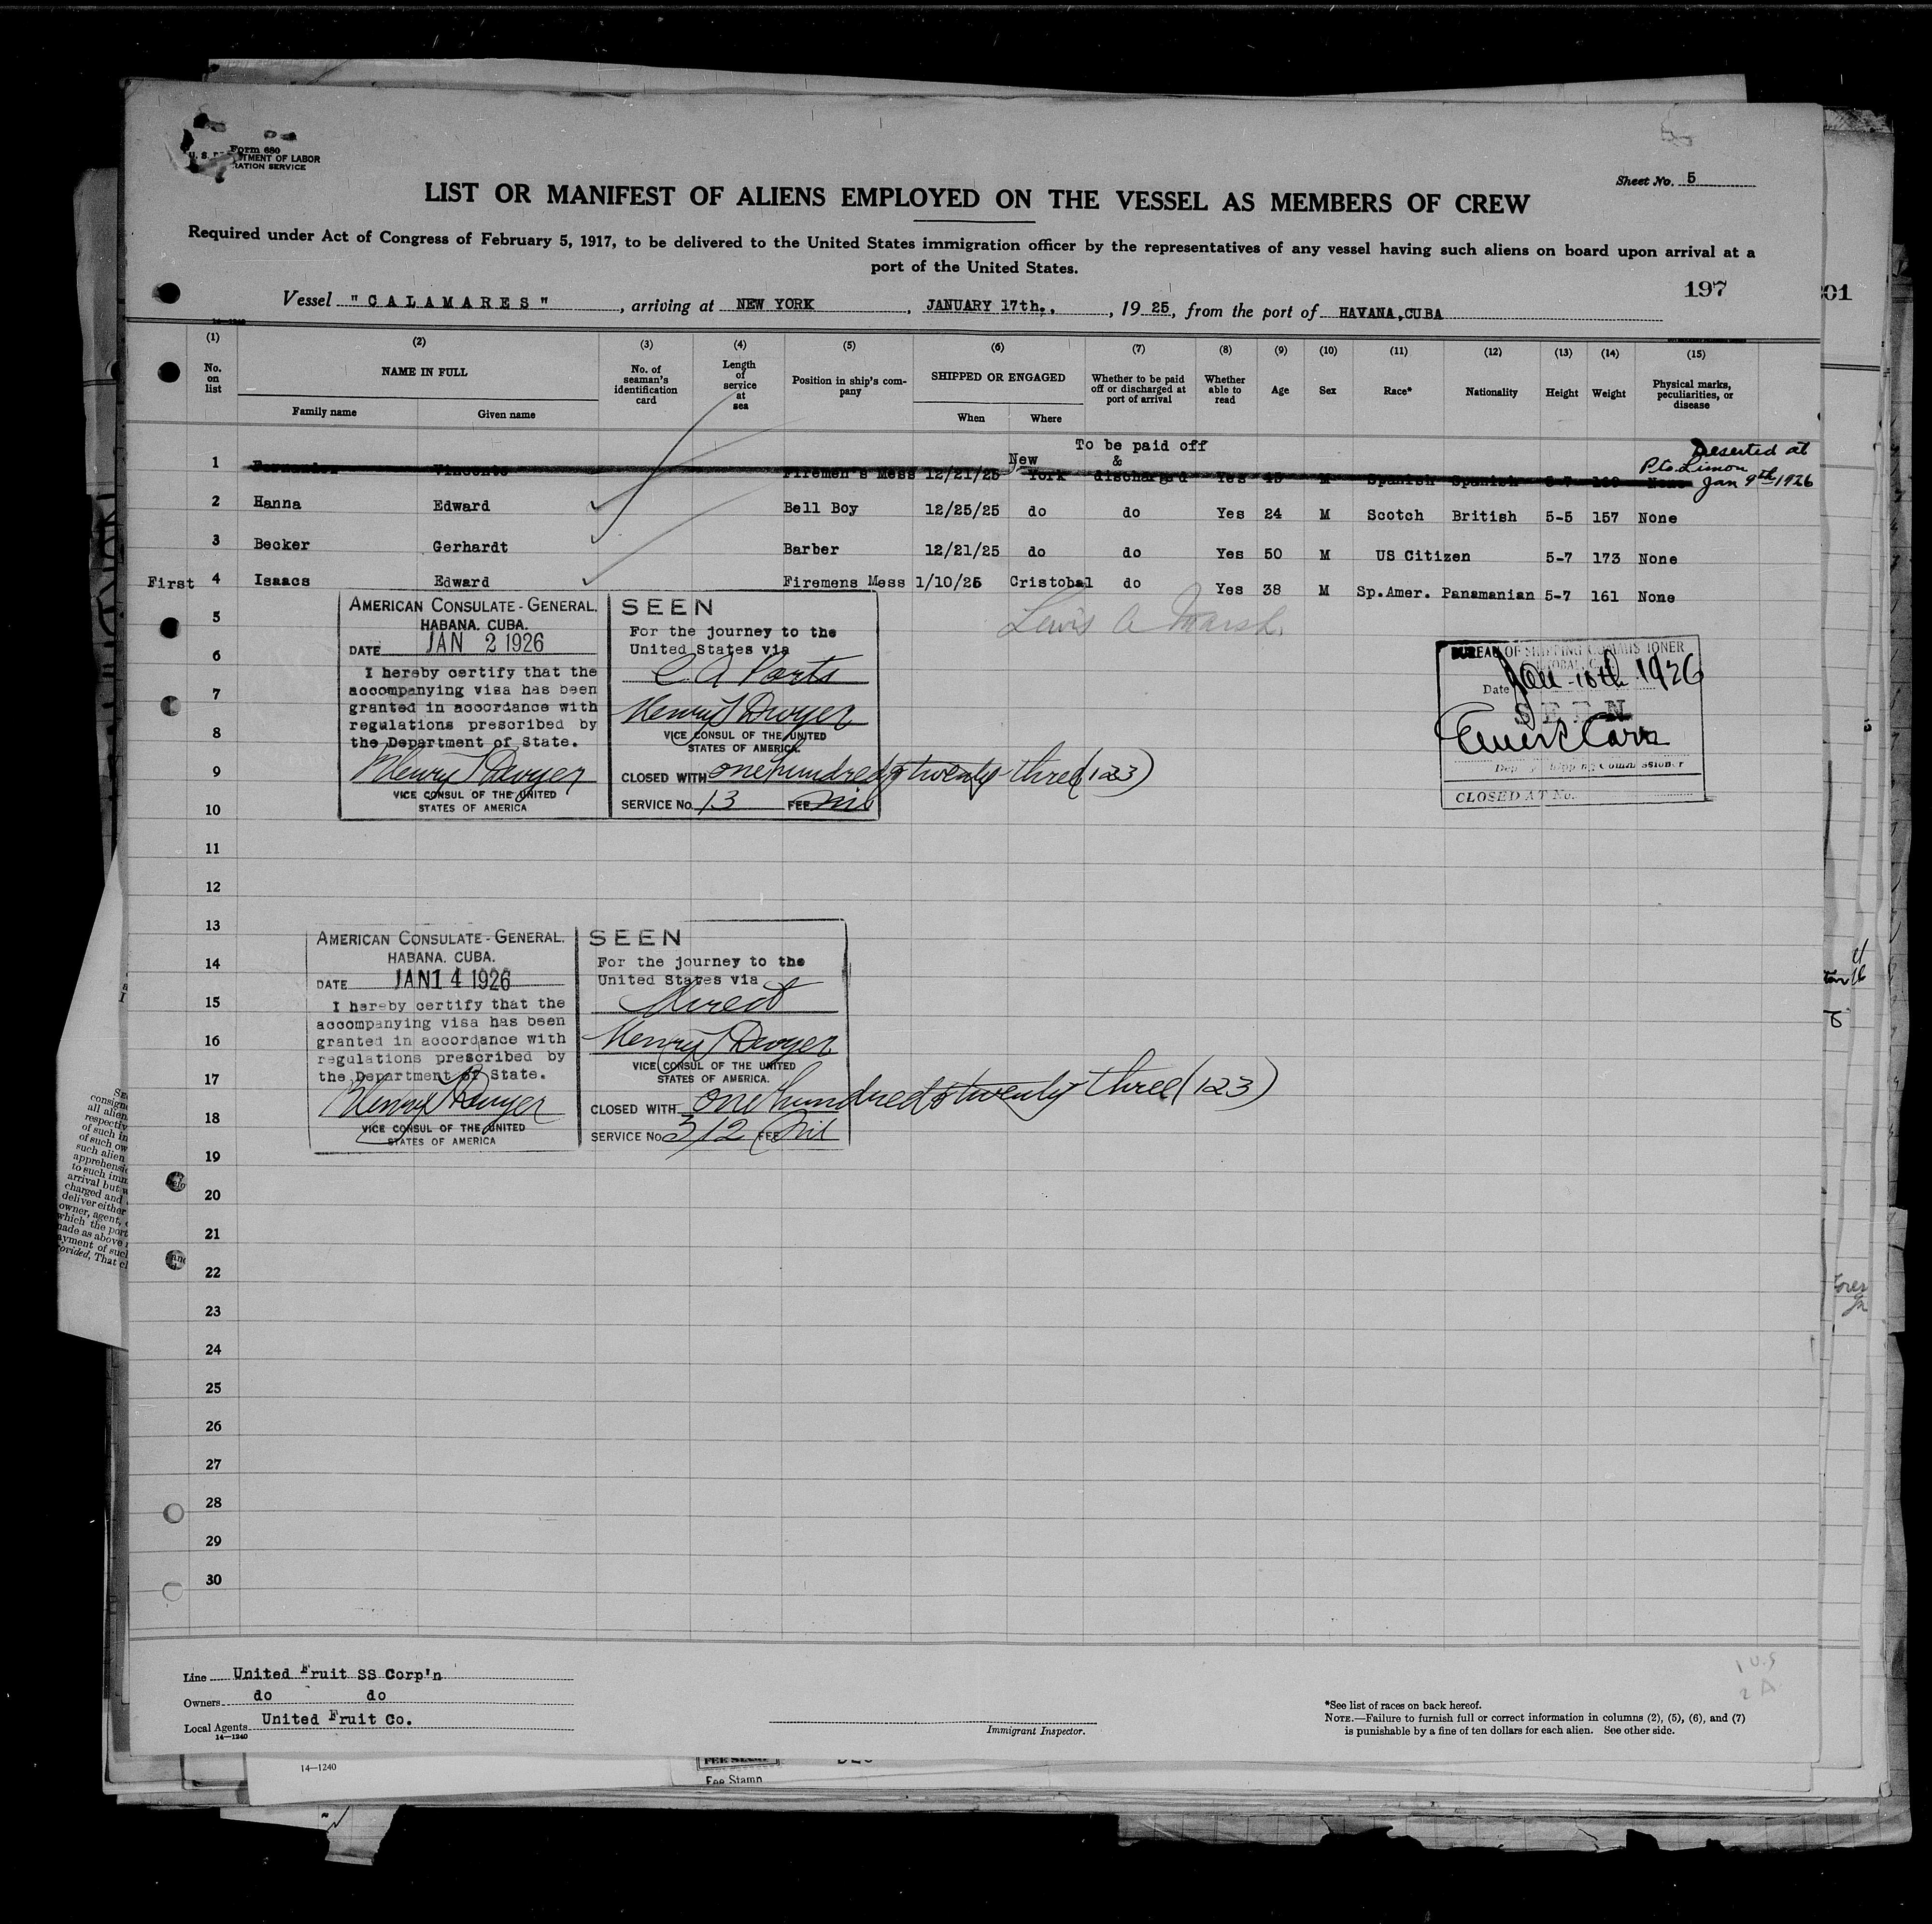 Form 680
U. S. DEPARTMENT OF LABOR
RATION SERVICE
Sheet No. 5
LIST OR MANIFEST OF ALIENS EMPLOYED ON THE VESSEL AS MEMBERS OF CREW
Required under Act of Congress of February 5, 1917, to be delivered to the United States immigration officer by the representatives of any vessel having such aliens on board upon arrival at a
port of the United States.
197
Vessel "CALAMARES", arriving at NEW YORK, JANUARY 17th., 1925, from the port of HAVANA,CUBA
14—1240
(1) (2) (3) (4) (5) (6) (7) (8) (9) (10) (11) (12) (13) (14) (15)
No. on list NAME IN FULL Family name Given name No. of seaman's identification card Length of service at sea Position in ship's company SHIPPED OR ENGAGED When Where Whether to be paid off or discharged at port of arrival Whether able to read Age Sex Race* Nationality Height Weight Physical marks, peculiarities, or disease
To be paid off
1 Vincente Firemen's Mess 12/21/25 New York & discharged Yes 45 M Spanish Spanish 5-7 None Deserted at Pto. Limon Jan 9th 1926
2 Hanna Edward Bell Boy 12/25/25 do do Yes 24 M Scotch British 5-5 157 None
3 Becker Gerhardt Barber 12/21/25 do do Yes 50 M US Citizen 5-7 173 None
First 4 Isaacs Edward Firemens Mess 1/10/26 Cristobal do Yes 38 M Sp.Amer. Panamanian 5-7 161 None
5
6
7
8
9
10
11
12
13
14
15
16
17
18
19
20
21
22
23
24
25
26
27
28
29
30
Lewis A Marsh
AMERICAN CONSULATE-GENERAL.
HABANA. CUBA.
DATE JAN 2 1926
I hereby certify that the
accompanying visa has been
granted in accordance with
regulations prescribed by
the Department of State.
Henry T Dwyer
VICE CONSUL OF THE UNITED
STATES OF AMERICA
SEEN
For the journey to the
United States via
C. A Ports
Henry T Dwyer
VICE CONSUL OF THE UNITED
STATES OF AMERICA.
CLOSED WITH one hundred & twenty three (123)
SERVICE No. 13 FEE Nil
BUREAU OF SHIPPING COMMISSIONER
Date Jan 10th 1926
SEEN
Deputy Shipping Commissioner
CLOSED AT No.
AMERICAN CONSULATE-GENERAL.
HABANA. CUBA.
DATE JAN 14 1926
I hereby certify that the
accompanying visa has been
granted in accordance with
regulations prescribed by
the Department of State.
Henry T Dwyer
VICE CONSUL OF THE UNITED
STATES OF AMERICA
SEEN
For the journey to the
United States via
direct
Henry T Dwyer
VICE CONSUL OF THE UNITED
STATES OF AMERICA.
CLOSED WITH one hundred & twenty three (123)
SERVICE No. 312 FEE Nil
Line United Fruit SS Corp'n
Owners do do
Local Agents United Fruit Co.
14—1240
Immigrant Inspector.
1 U.S
2 A.
*See list of races on back hereof.
NOTE.—Failure to furnish full or correct information in columns (2), (5), (6), and (7)
is punishable by a fine of ten dollars for each alien. See other side.
14—1240
Fee Stamp